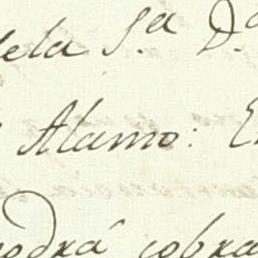 de la S.ª D.ª
Alamo: E
podrá cobra